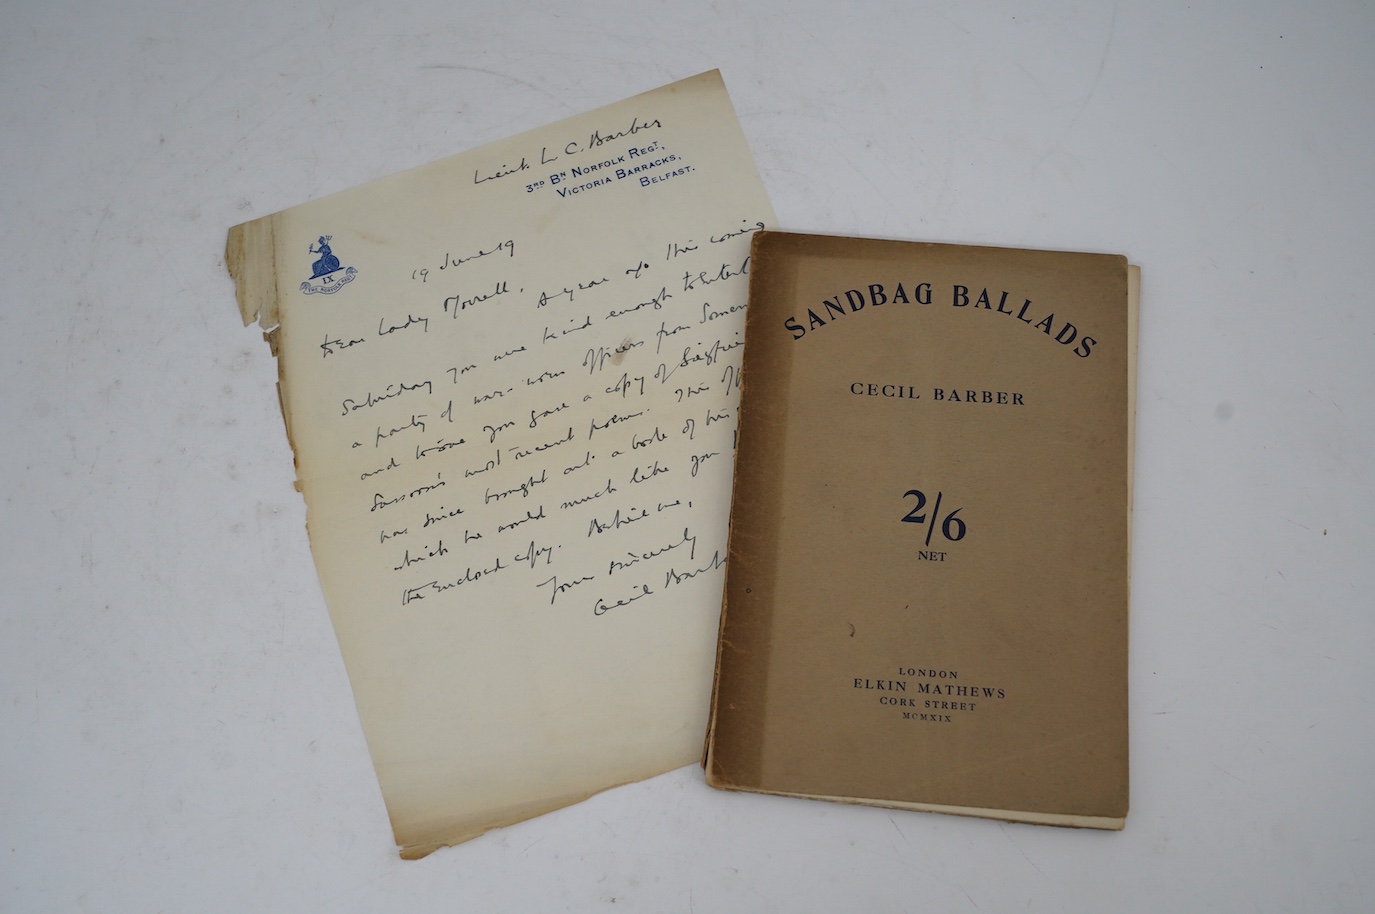 Lieut. L. C. Barber
3RD BN NORFOLK REGT,
VICTORIA BARRACKS,
BELFAST.
IX
THE NORFOLK REGT
19 June 19
Dear Lady Morrell,
A year ago this coming
Saturday you were kind enough to
a party of war-worn officers from
and to one you gave a copy of Siegfried
Sassoon's most recent poems. This
has since brought out a book of his
which he would much like you
the enclosed copy. Believe me,
Yours sincerely
Cecil
SANDBAG BALLADS
CECIL BARBER
2/6
NET
LONDON
ELKIN MATHEWS
CORK STREET
MCMXIX